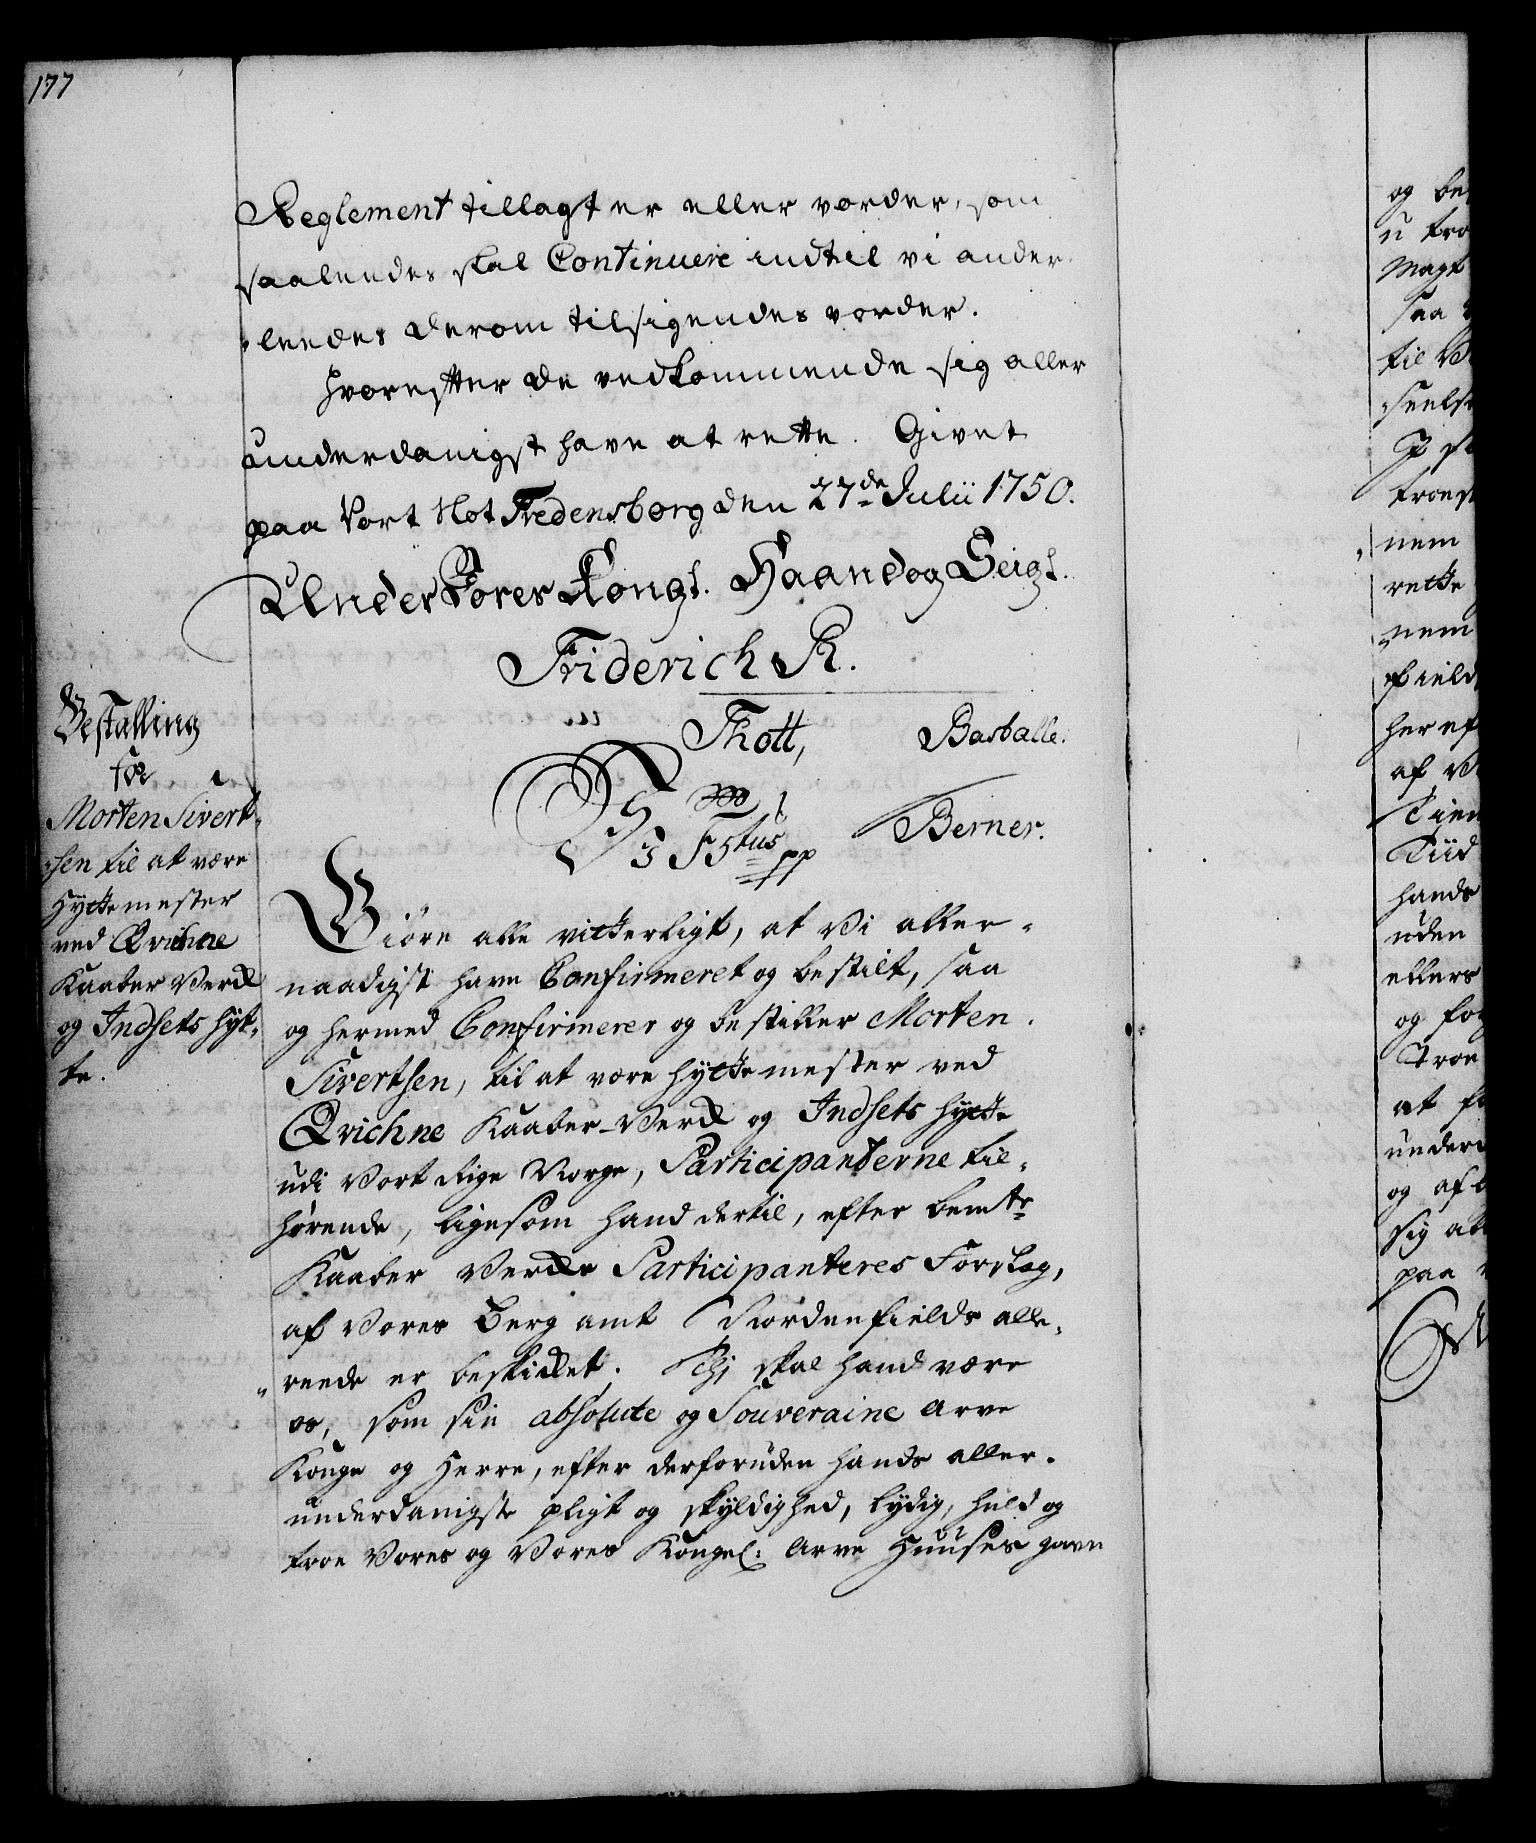 177
Reglement tillagt er eller vorder, som
saaledes skal Continuere indtil vi ander
-leedes derom tilsigendes vorder.
Hvorefter de vedkommende sig aller
underdanigst have at rette. Givet
paa Vort Slot Fredensborg den 27de Julii 1750.
Under Vores Kongl. Haand og Seigl.
Friderich R.
Thott, Barballe.
Berner.
Vi F5tus pp
Bestalling
for
Morten Sivert-
-sen til at være
Hyttemester
ved Qvichne
Kaaber Verck
og Indsets Hyt-
te.
Giöre alle vitterligt, at Vi aller-
naadigst have Confirmeret og bestilt, saa
og hermed Confirmerer og bestiller Morten
Sivertsen, til at være Hyttemester ved
Qvichne Kaaber-Verck og Indsets Hytte
udi Vort Rige Norge, Participanterne til-
hørende, ligesom hand dertil, efter bemte
Kaaber Vercks Participanteres Forslag,
af Vores Berg amt Nordenfields alle-
reede er beskicket. Thj skal hand være
os, som sin absolute og Souveraine Arve
Konge og Herre, efter derforuden hands aller-
underdanigste pligt og skyldighed, lydig, huld og
troe Vores og Vores Kongel: Arve Huuses gavn
og be
u tro
Magt
saa
til V
troes
nem
rette
nem
field
her ef
af V
Tien
Tiid
hands
uden
ellers
og for
Troe
at f
under
og af
sig al
paa